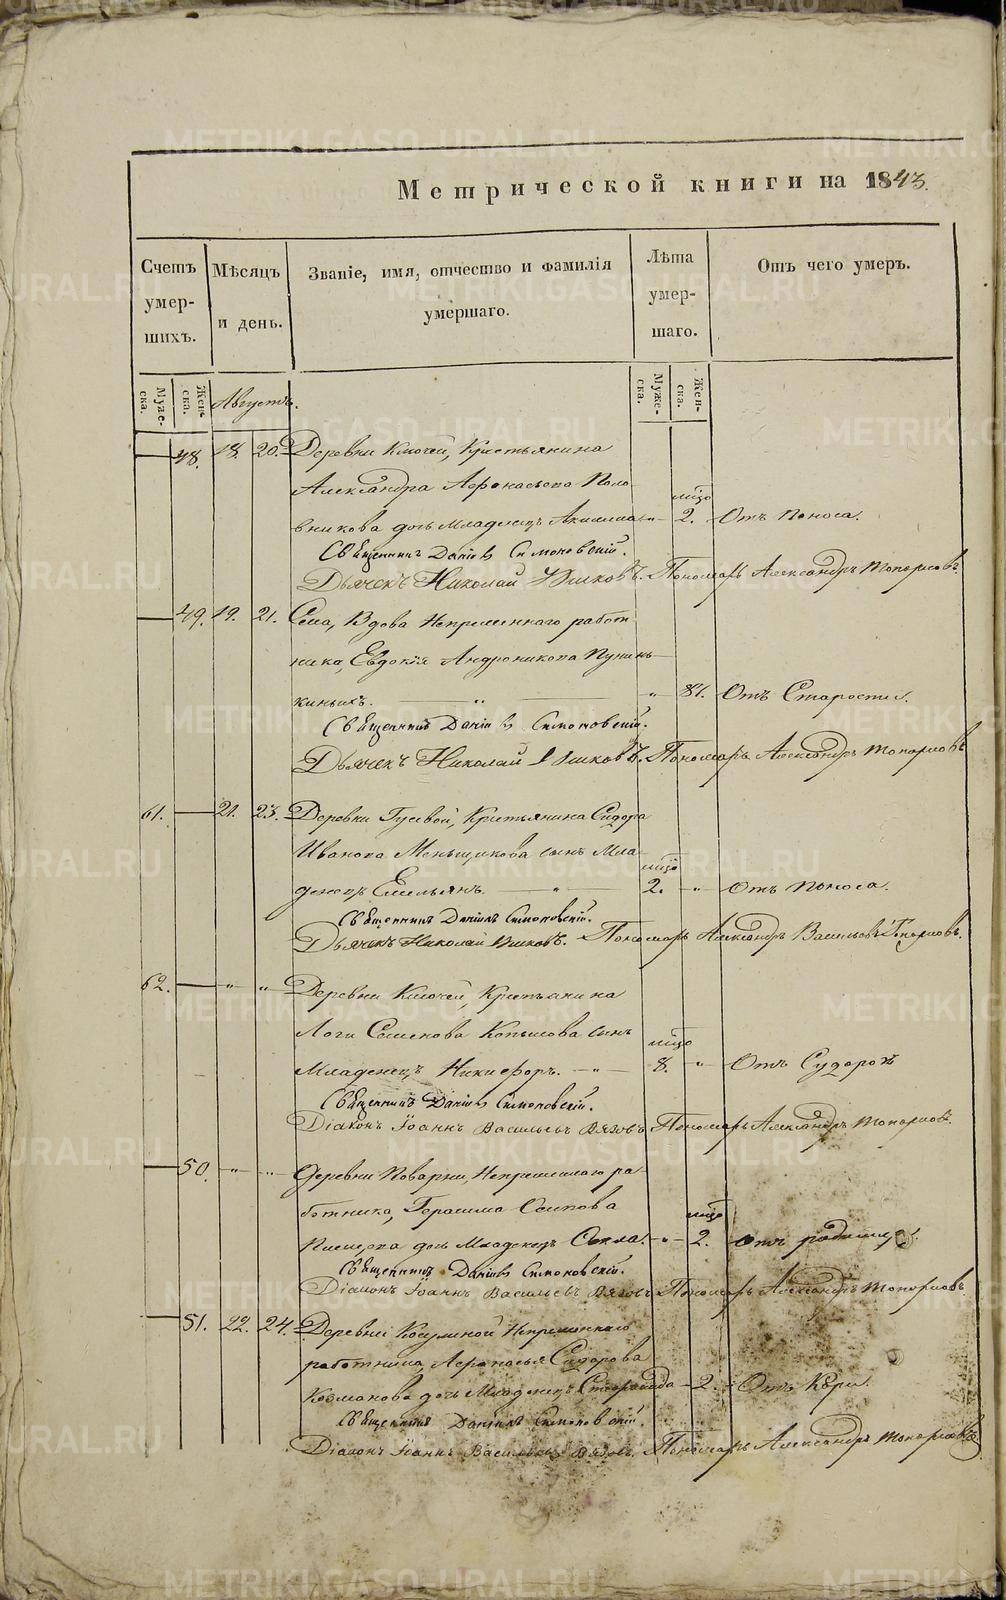 Метрической книги на 1843.
Счетъ умер-шихъ.
Мѣсяцъ и день.
Званіе, имя, отчество и фамилія умершаго.
Лѣта умер-шаго.
Отъ чего умеръ.
Муже-ска.
Жен-ска.
Августъ.
Муже-ска.
Жен-ска.
48. 18. 20. Деревни Ключей, Крестьянина
Александра Афонасьева Поло-
вникова дочь младенецъ Акилина „ 2. Отъ поноса.
Священникъ Даніилъ Симоновскій.
Дьячекъ Николай Пономарь Александръ Топорковъ.
49. 19. 21. Села, Вдова Непременнаго работ-
ника, Евдокія Андроникова
„ 87. Отъ Старости.
Священникъ Даніилъ Симоновскій.
Дьячекъ Николай Пономарь Александръ Топорковъ
61. 21. 23. Деревни Гусевой, Крестьянина Сидора
Иванова Меньщикова сынъ Мла-
денецъ Емельянъ. „ 2. „ Отъ поноса.
Священникъ Даніилъ Симоновскій.
Дьячекъ Николай Пономарь Александръ Васильевъ Топорковъ.
62. „ „ Деревни Ключей, Крестьянина
Семенова Копылова сынъ
Младенецъ Никифоръ. „ 8. „ Отъ Судорожъ
Священникъ Даніилъ Симоновскій.
Діаконъ Іоаннъ Васильевъ Вязовъ Пономарь Александръ Топорковъ.
50. „ „ Деревни Поварни, Непремѣннаго ра-
ботника, Герасима Осипова
дочь Младенецъ Фекла. „ 2. отъ родимцу.
Священникъ Даніилъ Симоновскій.
Діаконъ Іоаннъ Васильевъ Вязовъ Пономарь Александръ Топорковъ
51. 22. 24. Деревни Непременнаго
работника, Афонасья Сидорова
дочь Младенецъ 2. Отъ Кори.
Священникъ Даніилъ Симоновскій.
Діаконъ Іоаннъ Васильевъ Вязовъ. Пономарь Александръ Топорковъ
METRIKI.GASO-URAL.RU